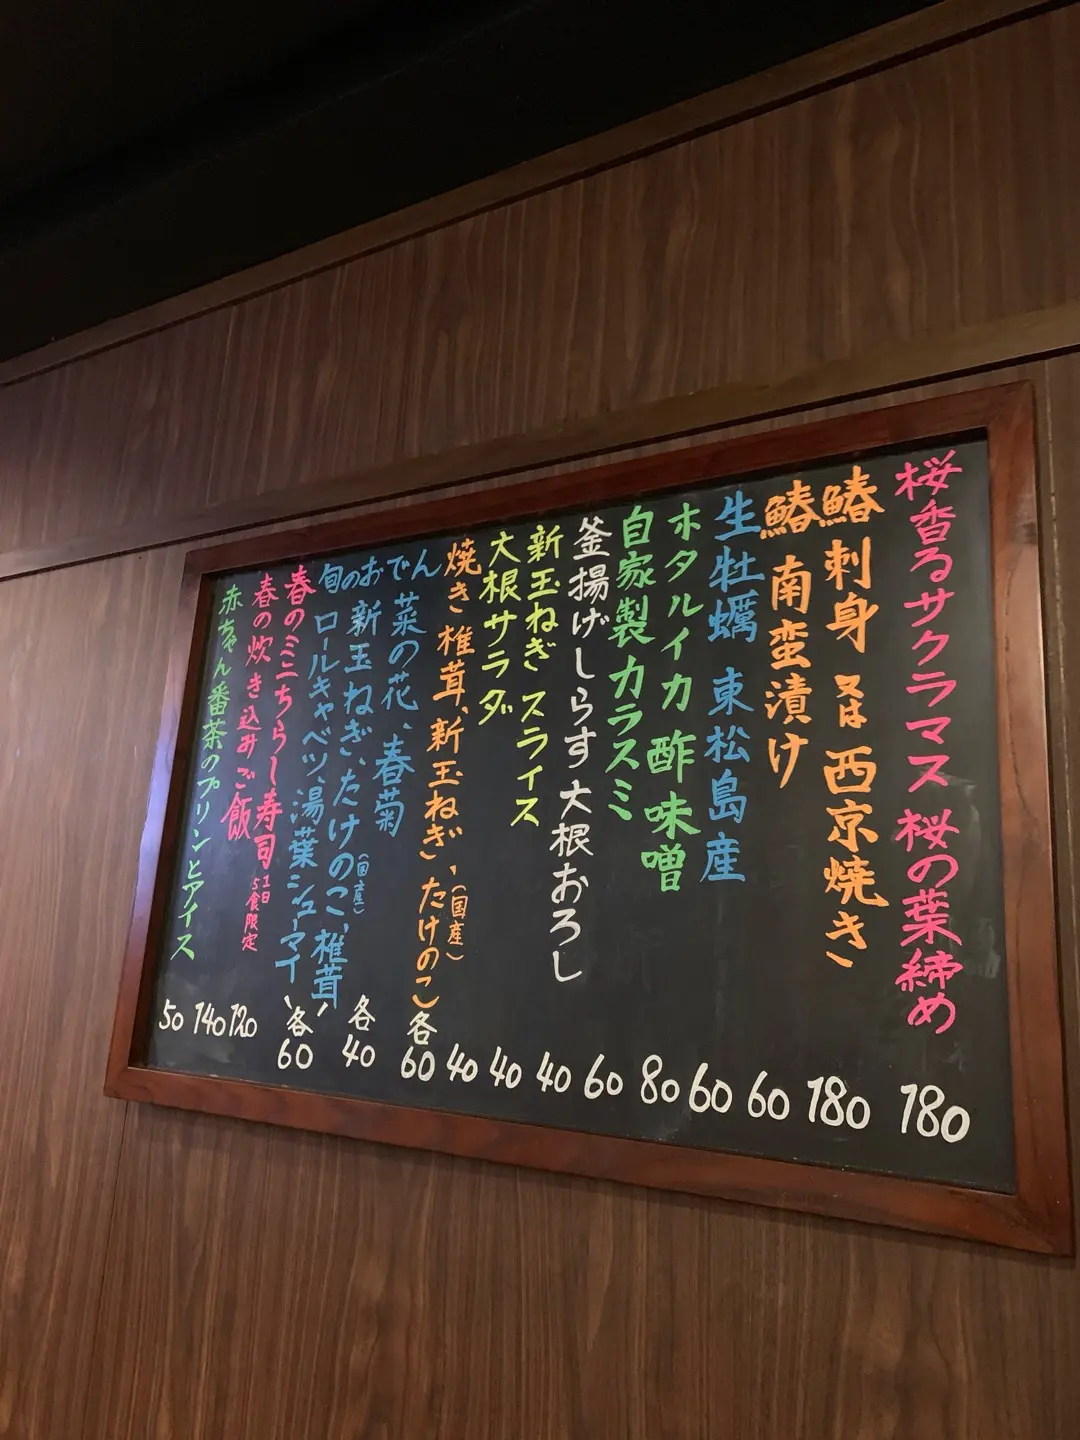 桜香るサクラマス 桜の葉締め 180
鰆 刺身 又は 西京焼き 180
鰆 南蛮漬け 60
生牡蠣 東松島産 60
ホタルイカ 酢味噌 80
自家製カラスミ 60
釜揚げしらす大根おろし 40
新玉ねぎ スライス 40
大根サラダ 40
焼き 椎茸、新玉ねぎ、(国産)たけのこ 各60
旬のおでん
菜の花、春菊 各40
新玉ねぎ、たけのこ(国産)、椎茸、
ロールキャベツ、湯葉シューマイ、各60
春のミニちらし寿司 1日5食限定 120
春の炊き込みご飯 140
赤ちゃん番茶のプリンとアイス 50